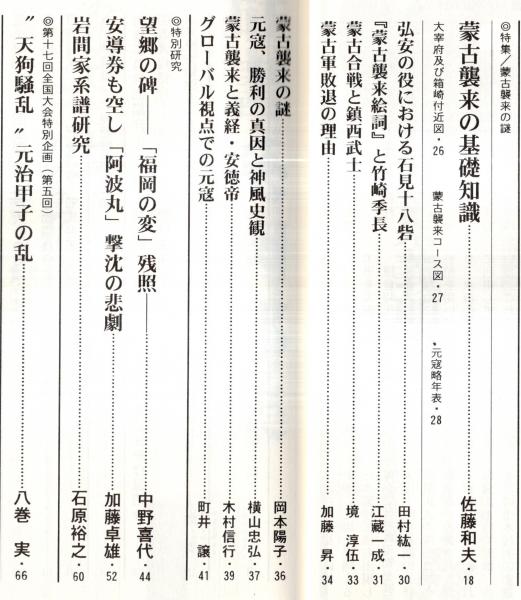 ◎特集/蒙古襲来の謎
蒙古襲来の基礎知識……佐藤和夫・18
大宰府及び箱崎付近図・26 蒙古襲来コース図・27 ・元寇略年表・28
弘安の役における石見十八砦……田村紘一・30
『蒙古襲来絵詞』と竹崎季長……江藏一成・31
蒙古合戦と鎮西武士……境 淳伍・33
蒙古軍敗退の理由……加藤 昇・34
蒙古襲来の謎……岡本陽子・36
元寇、勝利の真因と神風史観……横山忠弘・37
蒙古襲来と義経・安徳帝……木村信行・39
グローバル視点での元寇……町井 譲・41
◎特別研究
望郷の碑――「福岡の変」残照――中野喜代・44
安導券も空し「阿波丸」撃沈の悲劇……加藤卓雄・52
岩間家系譜研究……石原裕之・60
◎第十七回全国大会特別企画(第五回)
〝天狗騒乱〟元治甲子の乱……八巻 実・66